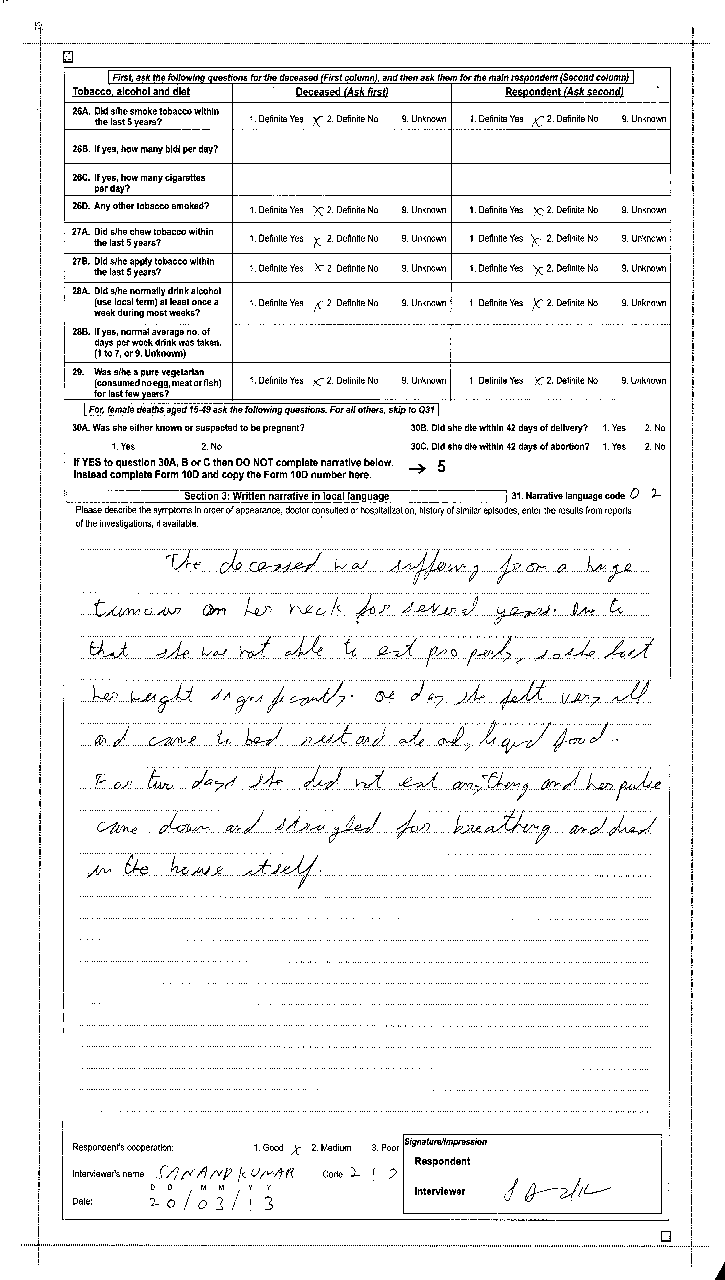 First, ask the following questions for the deceased (First column), and then ask them for the main respondent (Second column)
Tobacco, alcohol and diet Deceased (Ask first) Respondent (Ask second)
26A. Did s/he smoke tobacco within the last 5 years? 1. Definite Yes X 2. Definite No 9. Unknown 1. Definite Yes X 2. Definite No 9. Unknown
26B. If yes, how many bidi per day?
26C. If yes, how many cigarettes per day?
26D. Any other tobacco smoked? 1. Definite Yes X 2. Definite No 9. Unknown 1. Definite Yes X 2. Definite No 9. Unknown
27A. Did s/he chew tobacco within the last 5 years? 1. Definite Yes X 2. Definite No 9. Unknown 1. Definite Yes X 2. Definite No 9. Unknown
27B. Did s/he apply tobacco within the last 5 years? 1. Definite Yes X 2. Definite No 9. Unknown 1. Definite Yes X 2. Definite No 9. Unknown
28A. Did s/he normally drink alcohol (use local term) at least once a week during most weeks? 1. Definite Yes X 2. Definite No 9. Unknown 1. Definite Yes X 2. Definite No 9. Unknown
28B. If yes, normal average no. of days per week drink was taken. (1 to 7, or 9. Unknown)
29. Was s/he a pure vegetarian (consumed no egg, meat or fish) for last few years? 1. Definite Yes X 2. Definite No 9. Unknown 1. Definite Yes X 2. Definite No 9. Unknown
For, female deaths aged 15-49 ask the following questions. For all others, skip to Q31
30A. Was she either known or suspected to be pregnant? 30B. Did she die within 42 days of delivery? 1. Yes 2. No
1. Yes 2. No 30C. Did she die within 42 days of abortion? 1. Yes 2. No
If YES to question 30A, B or C then DO NOT complete narrative below.
Instead complete Form 10D and copy the Form 10D number here. → 5
Section 3: Written narrative in local language 31. Narrative language code 0 2
Please describe the symptoms in order of appearance, doctor consulted or hospitalization, history of similar episodes, enter the results from reports
of the investigations, if available.
The deceased was suffering from a huge
tumour on her neck for several years. Due to
that she was not able to eat properly, so she lost
her weight significantly. One day she felt very ill
and came to bed rest and ate only liquid food.
For two days she did not eat anything and her pulse
came down and struggled for breathing and died
in the house itself.
Respondent's cooperation: 1. Good X 2. Medium 3. Poor
Signature/Impression
Respondent
Interviewer's name SANAND KUMAR Code 2 1
D D M M Y Y
Date: 20/03/13
Interviewer